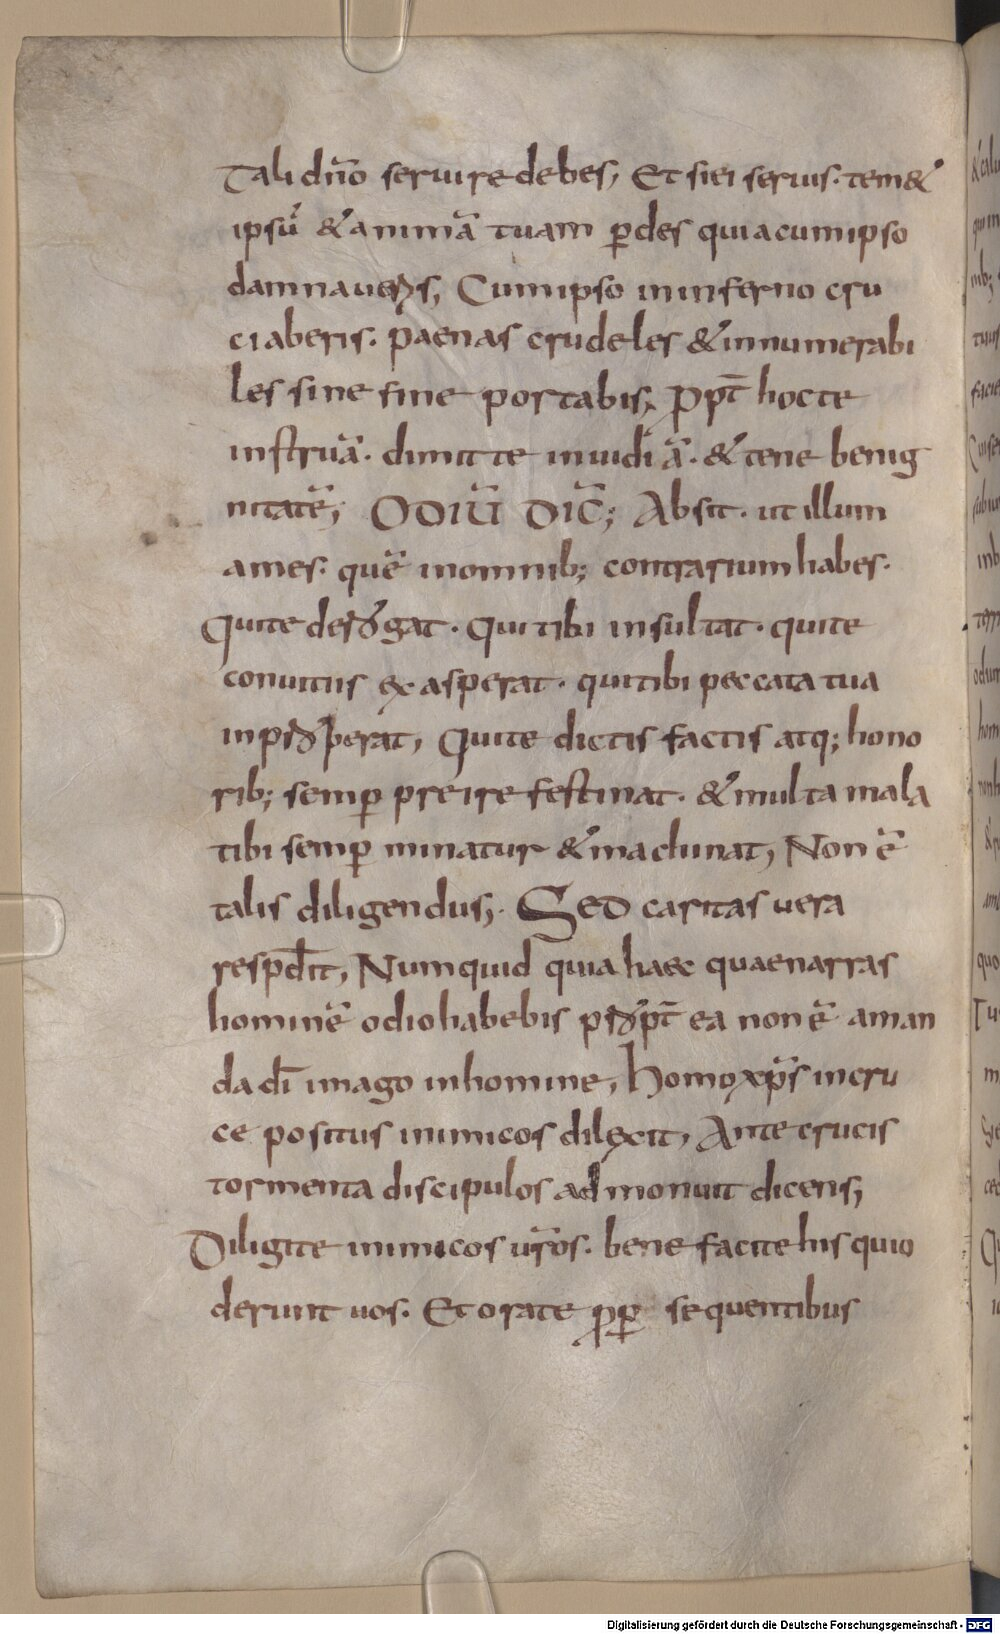 Tali dño seruire debes; Et si ei seruis. temet
ipsū & animā tuam ꝑdes quia cum ipso
damnaueris; Cum ipso in inferno cru
ciaberis. paenas crudeles & innumerabi
les sine fine portabis; ꝓpt̄ hoc te
instruā. dimitte inuidiā. & tene benig
nitatē; ODIŪ DIC̄; Absit. ut illum
ames. quē in omnib; contrarium habes.
Qui te derogat. Qui tibi insultat. qui te
conuitiis exasperat. qui tibi peccata tua
inproperat, Qui te dictis factis atq; hono
rib; semꝑ preire festinat. & multa mala
tibi semꝑ minatur & machinat, Non ē
talis diligendus; SED caritas uera
respd̄it, Numquid quia haec quae narras
hominē odio habebis propt̄ ea non ē aman
da dī imago in homine, Homo xp̄s in cru
ce positus inimicos dilexit, Ante crucis
tormenta discipulos admonuit dicens;
Diligite inimicos ur̄os. bene facite his qui o
derunt uos. Et orate ꝓ ꝑsequentibus
Digitalisierung gefördert durch die Deutsche Forschungsgemeinschaft - DFG